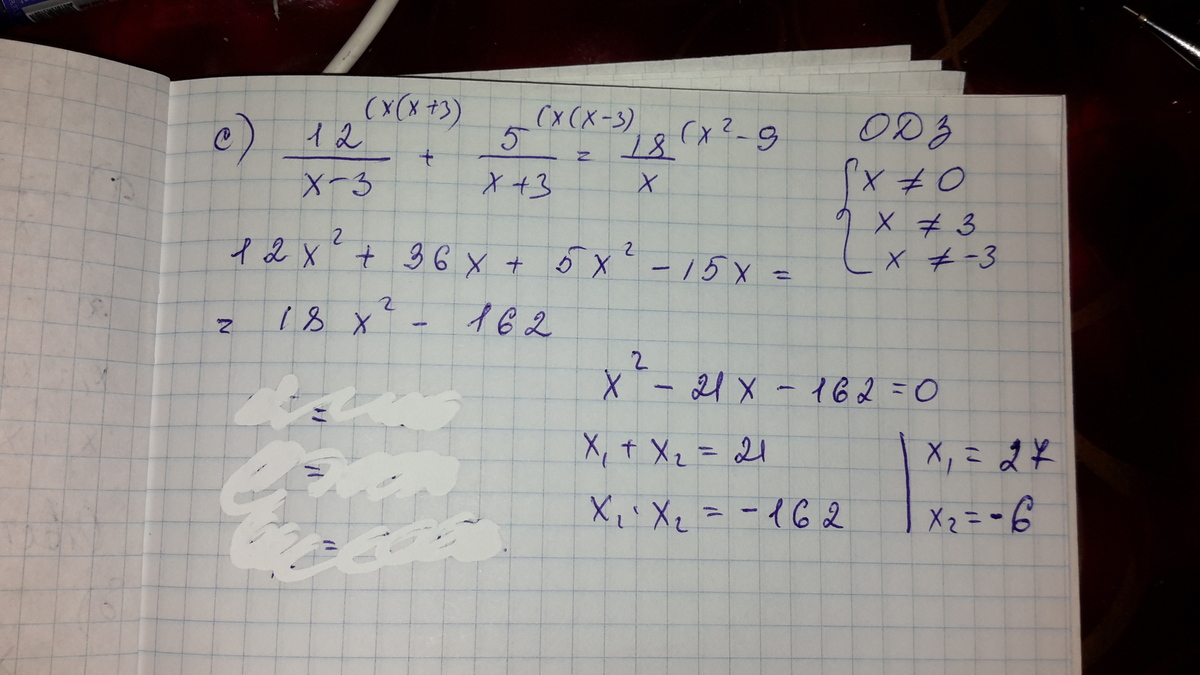 c) 12/(x-3) (x(x+3) + 5/(x+3) (x(x-3) = 18/x (x² - 9
ОДЗ
{ x ≠ 0
x ≠ 3
x ≠ -3
12x² + 36x + 5x² - 15x =
= 18x² - 162
x² - 21x - 162 = 0
x₁ + x₂ = 21 | x₁ = 27
x₁ · x₂ = -162 | x₂ = -6